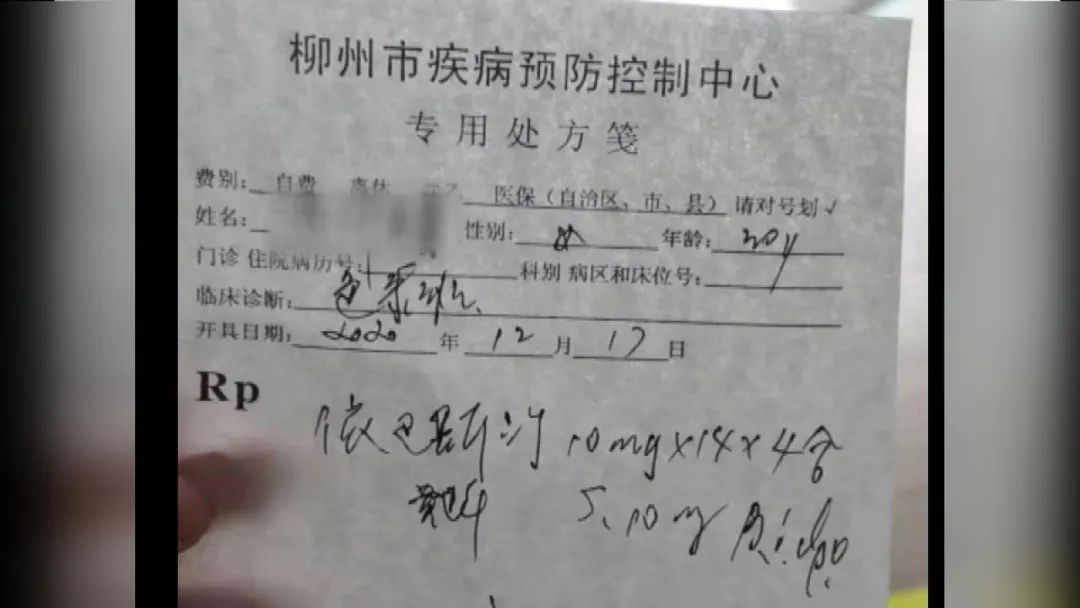 柳州市疾病预防控制中心
专用处方笺
费别: 自费 离休 医保（自治区、市、县）请对号划√
姓名: 性别: 女 年龄: 30y
门诊 住院病历号: 科别 病区和床位号:
临床诊断:
开具日期: 2020 年 12 月 17 日
Rp
依巴斯汀 10mg×14×4盒
5.10mg